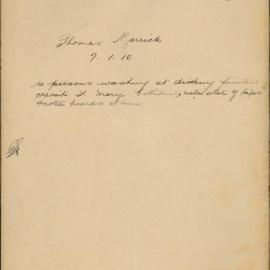 Thomas Merrick
7.1.10
re persons washing at drinking fountain
opposite St. Mary Cathedral, & also state of
& notice boards at